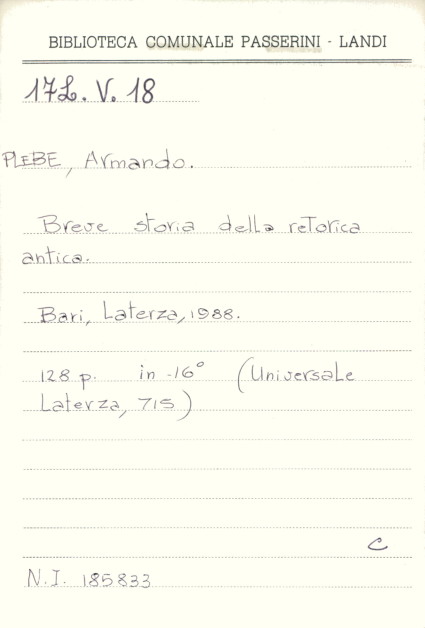 BIBLIOTECA COMUNALE PASSERINI - LANDI
17L. V. 18
PLEBE, Armando.
Breve storia della retorica
antica.
Bari, Laterza, 1988.
128 p. in -16° (Universale
Laterza, 715)
C
N.I. 185833